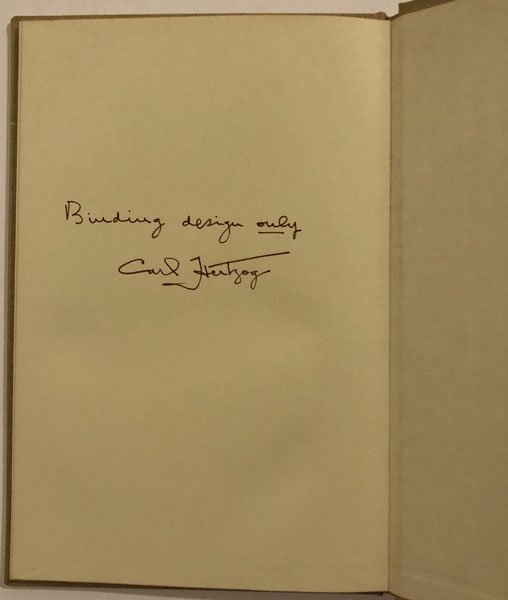 Binding design only
Carl Hertzog